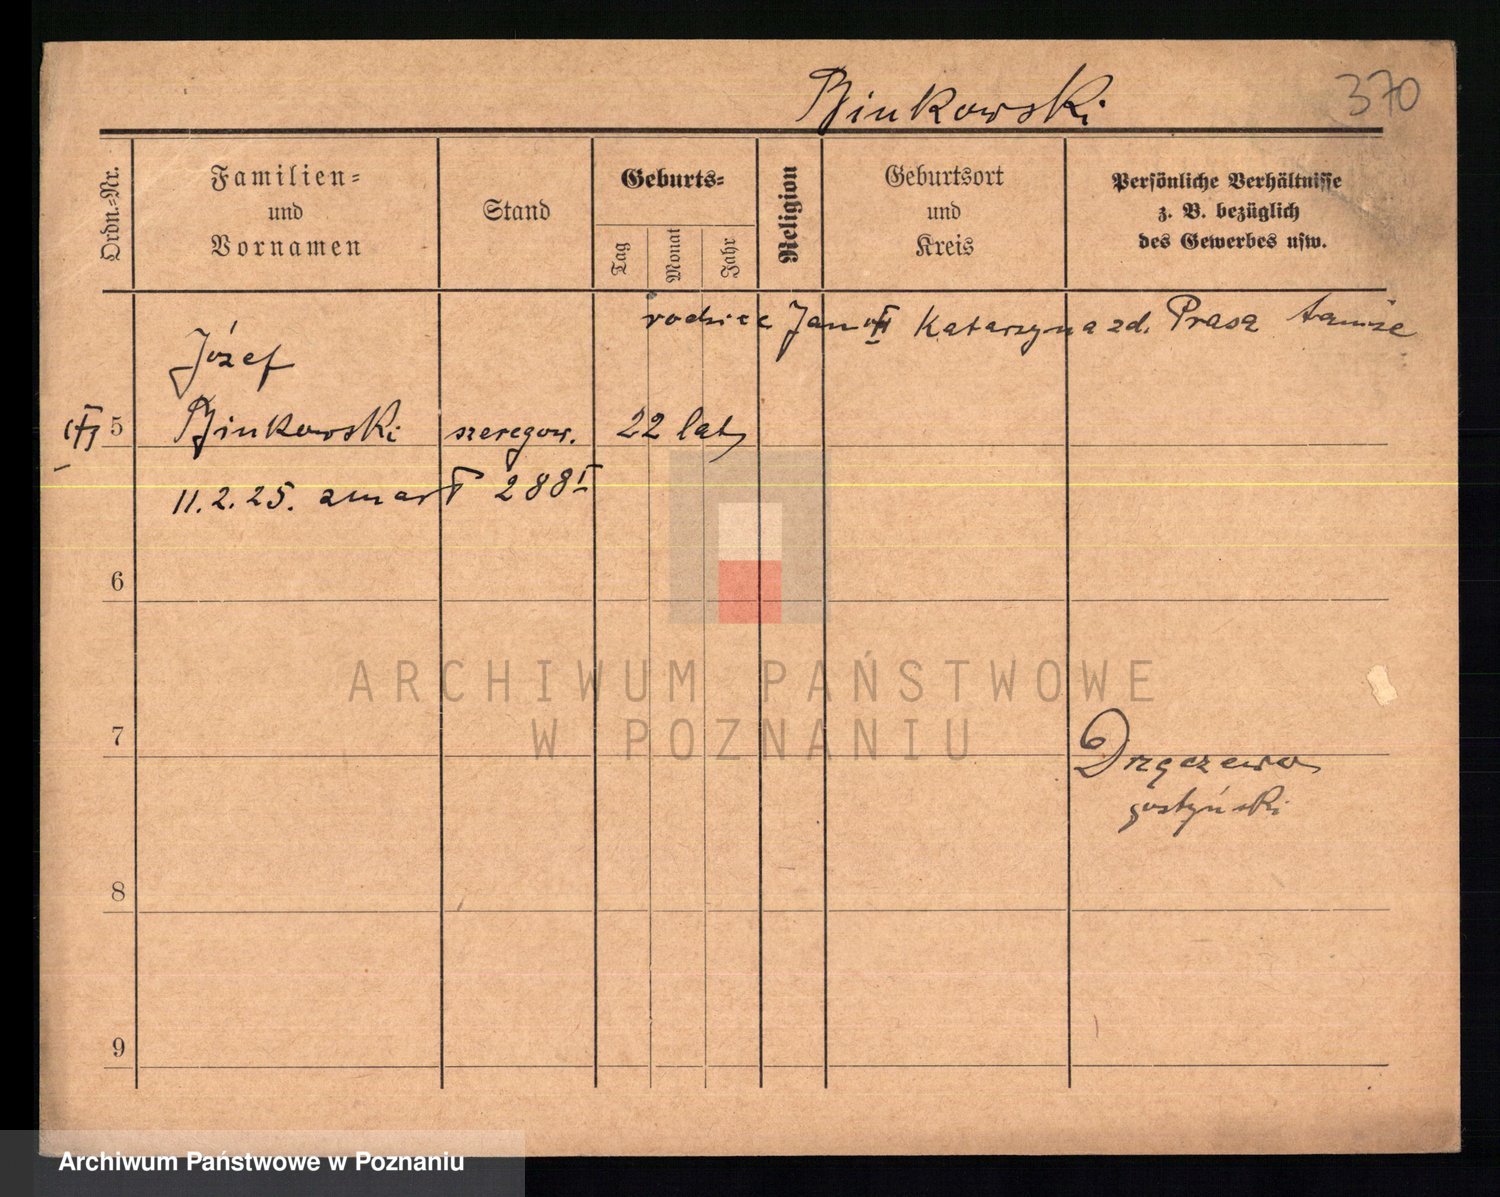 Binkowski
370
Ordn.-Nr.
Familien-
und
Vornamen
Stand
Geburts-
Tag
Monat
Jahr
Religion
Geburtsort
und
Kreis
Persönliche Verhältnisse
z. B. bezüglich
des Gewerbes usw.
rodzice Jan Katarzyna zd. Prasa tamże
Józef
5 Binkowski szeregow. 22 laty
11.2.25. zmarł 288 I
6
ARCHIWUM PAŃSTWOWE
W POZNANIU
7
Drzęczewo
gostyński
8
9
Archiwum Państwowe w Poznaniu